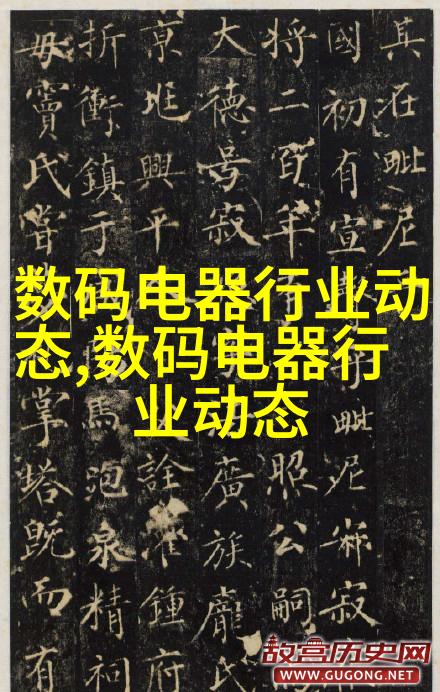 其在毗尼
國初有宣毗尼寂
将二百年照公嗣
大德号寂廣族龐氏
京兆興平詮灌鍾府
折衝鎮于馬泡泉精祠
毋竇氏嘗掌塔既而有
数码电器行业动
态,数码电器行
业动态
故宫历史网
WWW.GUGONG.NET